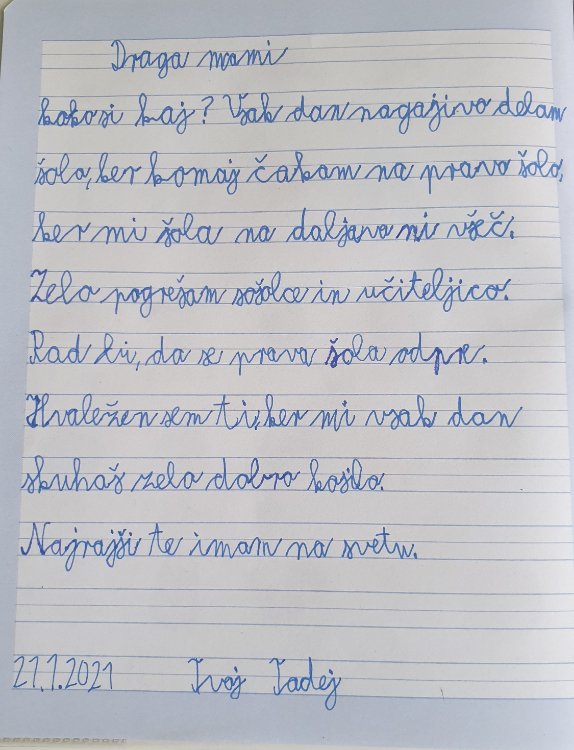 Draga mami
kako si kaj? Vsak dan nagajivo delam
šolo, ker komaj čakam na pravo šolo,
ker mi šola na daljavo ni všeč.
Zelo pogrešam sošolce in učiteljico.
Rad bi, da se prava šola odpre.
Hvaležen sem ti, ker mi vsak dan
skuhaš zelo dobro kosilo.
Najrajši te imam na svetu.
21.1.2021 Tvoj Tadej